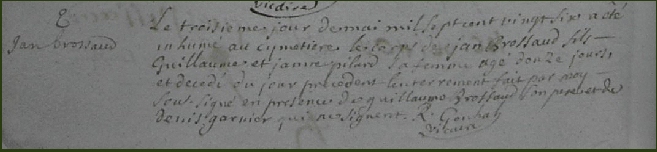 vicaire
E
Jan Brossaud
Le troisieme jour de mai mil sept cent vingt six a été
inhumé au cymetiere le corps de jan Brossaud fils
Guillaume et janne pilard sa femme agé donze jours
et decedé du jour precedent lenterrement fait par moy
sous signé en presence de guillaume Brossaud son pere et de
denis garnier qui ne signent. R. Gouha
vicaire